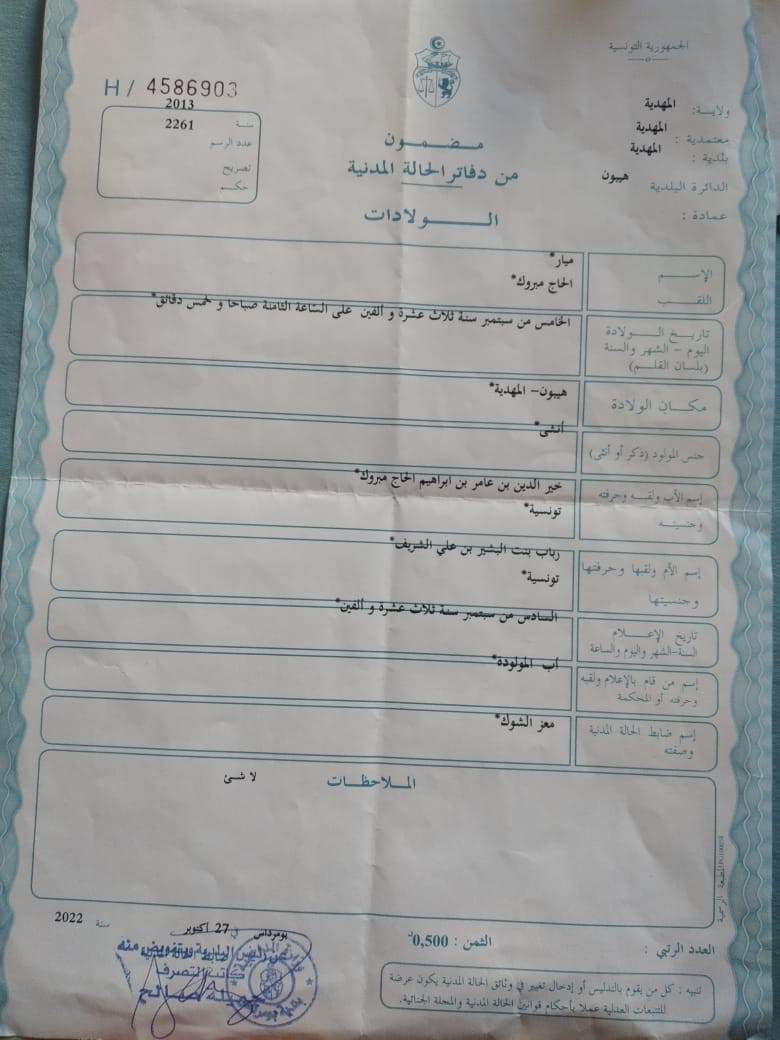 الجمهورية التونسية
H/ 4586903
ولاية: المهدية
معتمدية : المهدية
بلدية : المهدية
الدائرة البلدية هيبون
عمادة :
سنة 2013
عدد الرسم 2261
تصريح
حكم
مضمون
من دفاتر الحالة المدنية
الولادات
الإسم ميار*
اللقب الحاج مبروك*
تاريخ الولادة
اليوم - الشهر والسنة
(بلسان القلم)
الخامس من سبتمبر سنة ثلاث عشرة و ألفين على الساعة الثامنة صباحا و خمس دقائق*
مكان الولادة هيبون- المهدية*
جنس المولود (ذكر أو أنثى) أنثى*
إسم الأب ولقبه وحرفته خير الدين بن عامر بن ابراهيم الحاج مبروك*
وجنسيته تونسية*
إسم الأم ولقبها وحرفتها رباب بنت البشير بن علي الشريف*
وجنسيتها تونسية*
تاريخ الإعلام
السنة-الشهر واليوم والساعة
السادس من سبتمبر سنة ثلاث عشرة و ألفين*
إسم من قام بالإعلام ولقبه
وحرفته أو المحكمة
أب المولودة*
إسم ضابط الحالة المدنية
وصفته
معز الشوك*
الملاحظات
لا شئ
المطبعة الرسمية
بومرداس في 27 أكتوبر سنة 2022
العدد الرتبي : الثمن : 0,500د
تنبيه : كل من يقوم بالتدليس أو إدخال تغيير في وثائق الحالة المدنية يكون عرضة
للتتبعات العدلية عملا بأحكام قوانين الحالة المدنية والمجلة الجنائية.